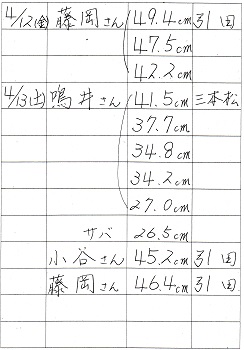 4/12(金) 藤岡さん 49.4cm 引田
47.5cm
42.2cm
4/13(土) 鳴井さん 41.5cm 三本松
37.7cm
34.8cm
34.2cm
27.0cm
サバ 26.5cm
小谷さん 45.2cm 引田
藤岡さん 46.4cm 引田